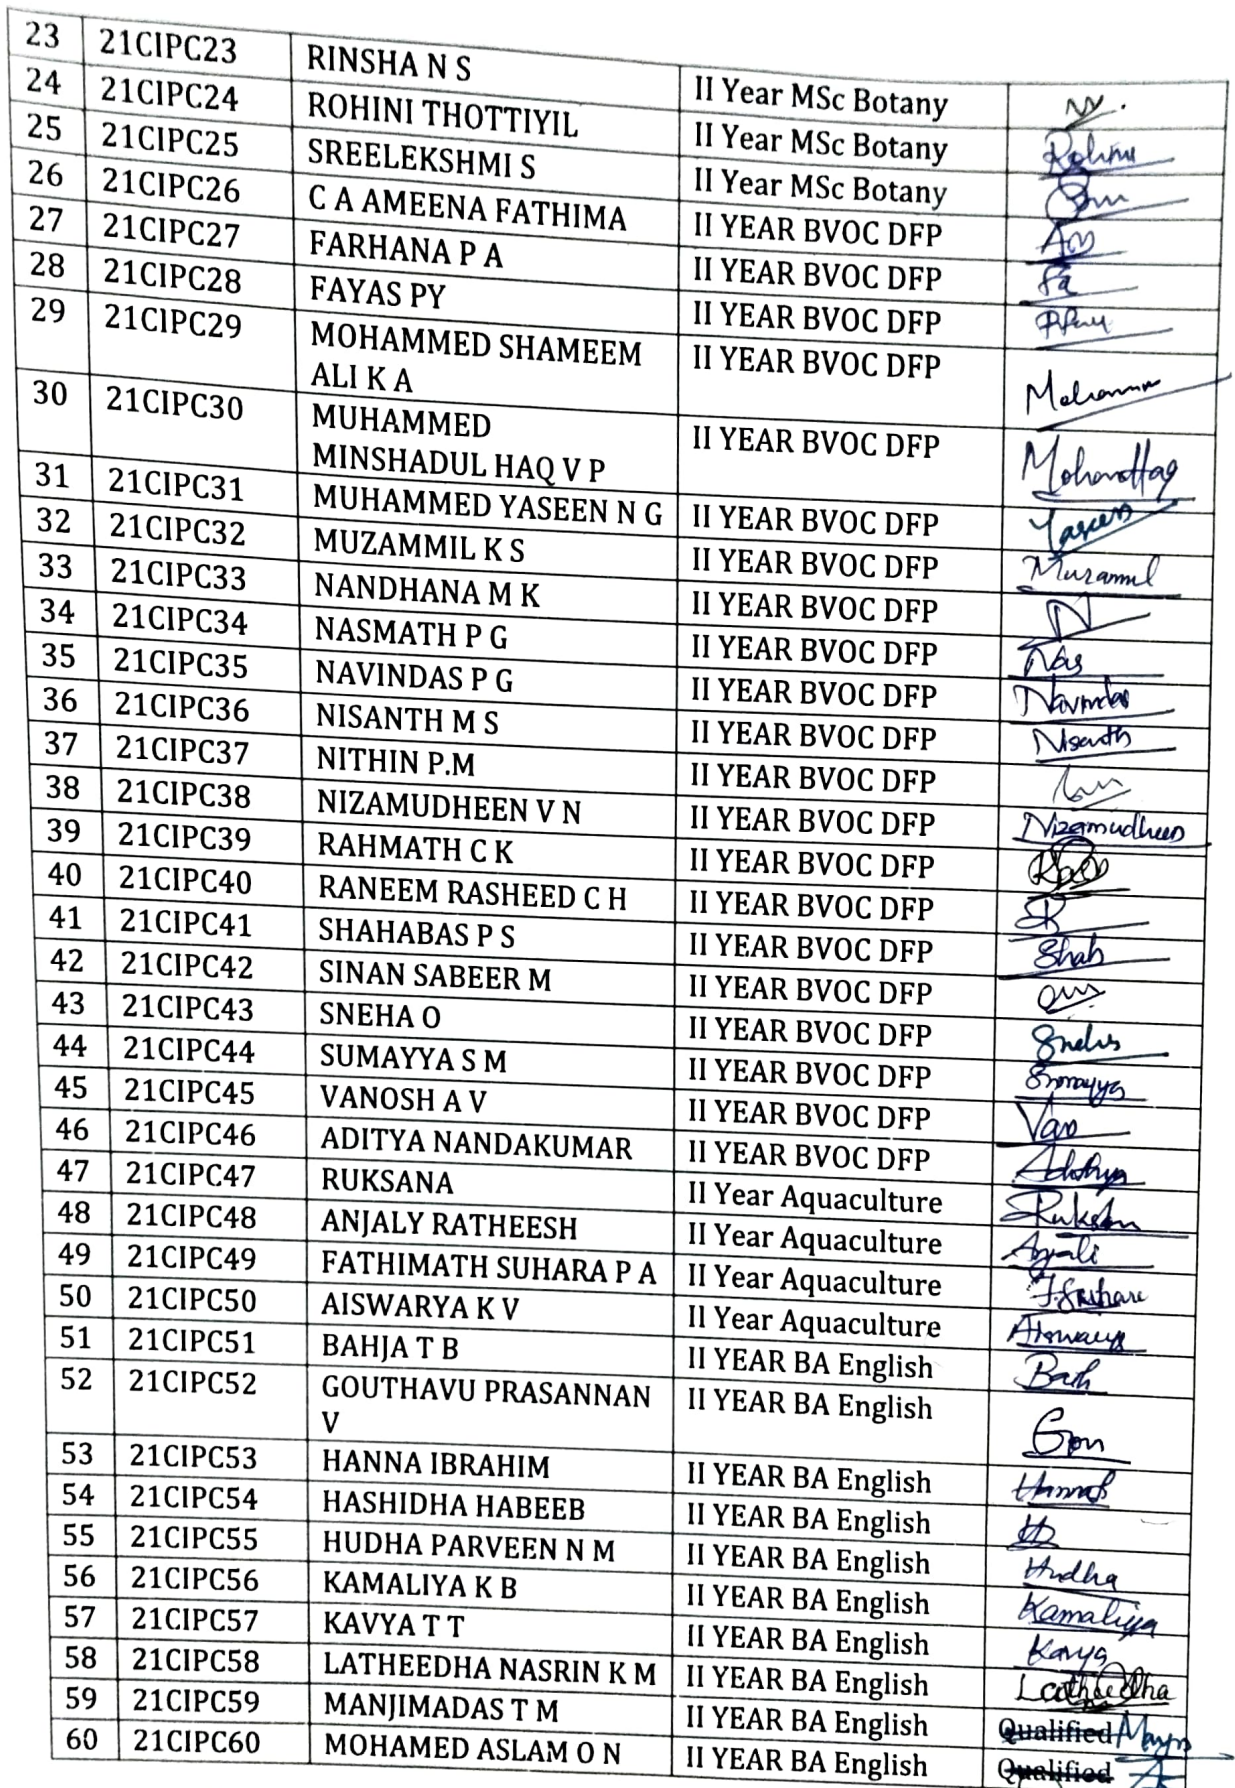 23 21CIPC23 RINSHA N S II Year MSc Botany
24 21CIPC24 ROHINI THOTTIYIL II Year MSc Botany Rohini
25 21CIPC25 SREELEKSHMI S II Year MSc Botany
26 21CIPC26 C A AMEENA FATHIMA II YEAR BVOC DFP
27 21CIPC27 FARHANA P A II YEAR BVOC DFP Fa
28 21CIPC28 FAYAS PY II YEAR BVOC DFP
29 21CIPC29 MOHAMMED SHAMEEM II YEAR BVOC DFP
ALI K A
30 21CIPC30 MUHAMMED II YEAR BVOC DFP
MINSHADUL HAQ V P
31 21CIPC31 MUHAMMED YASEEN N G II YEAR BVOC DFP Yaseen
32 21CIPC32 MUZAMMIL K S II YEAR BVOC DFP Muzammil
33 21CIPC33 NANDHANA M K II YEAR BVOC DFP N
34 21CIPC34 NASMATH P G II YEAR BVOC DFP Nas
35 21CIPC35 NAVINDAS P G II YEAR BVOC DFP Navindas
36 21CIPC36 NISANTH M S II YEAR BVOC DFP Nisanth
37 21CIPC37 NITHIN P.M II YEAR BVOC DFP
38 21CIPC38 NIZAMUDHEEN V N II YEAR BVOC DFP Nizamudheen
39 21CIPC39 RAHMATH C K II YEAR BVOC DFP
40 21CIPC40 RANEEM RASHEED C H II YEAR BVOC DFP R
41 21CIPC41 SHAHABAS P S II YEAR BVOC DFP Shah
42 21CIPC42 SINAN SABEER M II YEAR BVOC DFP
43 21CIPC43 SNEHA O II YEAR BVOC DFP Sneha
44 21CIPC44 SUMAYYA S M II YEAR BVOC DFP Sumayya
45 21CIPC45 VANOSH A V II YEAR BVOC DFP Van
46 21CIPC46 ADITYA NANDAKUMAR II YEAR BVOC DFP
47 21CIPC47 RUKSANA II Year Aquaculture
48 21CIPC48 ANJALY RATHEESH II Year Aquaculture Anjali
49 21CIPC49 FATHIMATH SUHARA P A II Year Aquaculture
50 21CIPC50 AISWARYA K V II Year Aquaculture Aiswarya
51 21CIPC51 BAHJA T B II YEAR BA English Bah
52 21CIPC52 GOUTHAVU PRASANNAN II YEAR BA English
V
53 21CIPC53 HANNA IBRAHIM II YEAR BA English
54 21CIPC54 HASHIDHA HABEEB II YEAR BA English
55 21CIPC55 HUDHA PARVEEN N M II YEAR BA English Hudha
56 21CIPC56 KAMALIYA K B II YEAR BA English Kamaliya
57 21CIPC57 KAVYA T T II YEAR BA English Kavya
58 21CIPC58 LATHEEDHA NASRIN K M II YEAR BA English Latheedha
59 21CIPC59 MANJIMADAS T M II YEAR BA English Qualified
60 21CIPC60 MOHAMED ASLAM O N II YEAR BA English Qualified